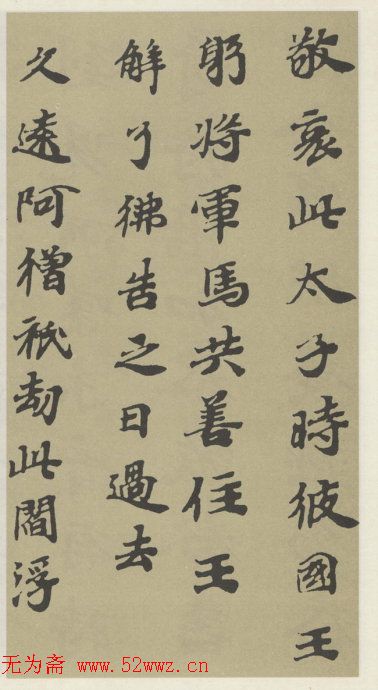 敬哀此太子時彼國王
躬将軍馬共善住王
解了彿告之曰過去
久遠阿僧祇劫此閻浮
无为斋 www.52wwz.cn